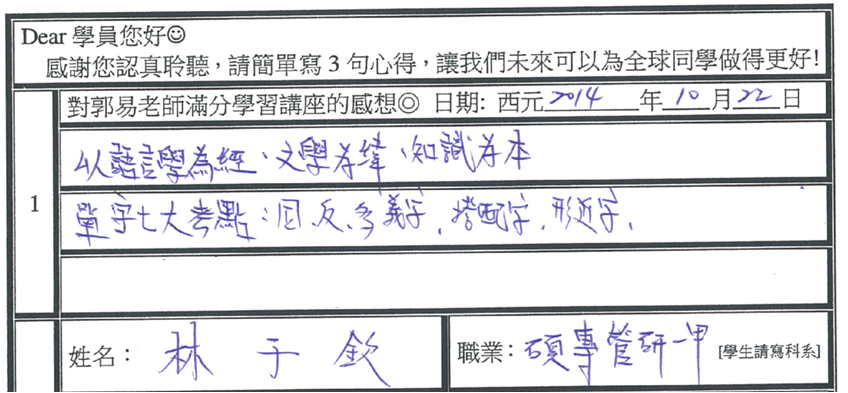 Dear 學員您好☺
感謝您認真聆聽，請簡單寫 3 句心得，讓我們未來可以為全球同學做得更好!
對郭易老師滿分學習講座的感想◎ 日期: 西元 2014 年 10 月 22 日
1
以語言學為經、文學為緯、知識為本
單字七大考點：同、反、多義字、搭配字、形近字、
姓名： 林于欽
職業： 碩專管研一甲 [學生請寫科系]